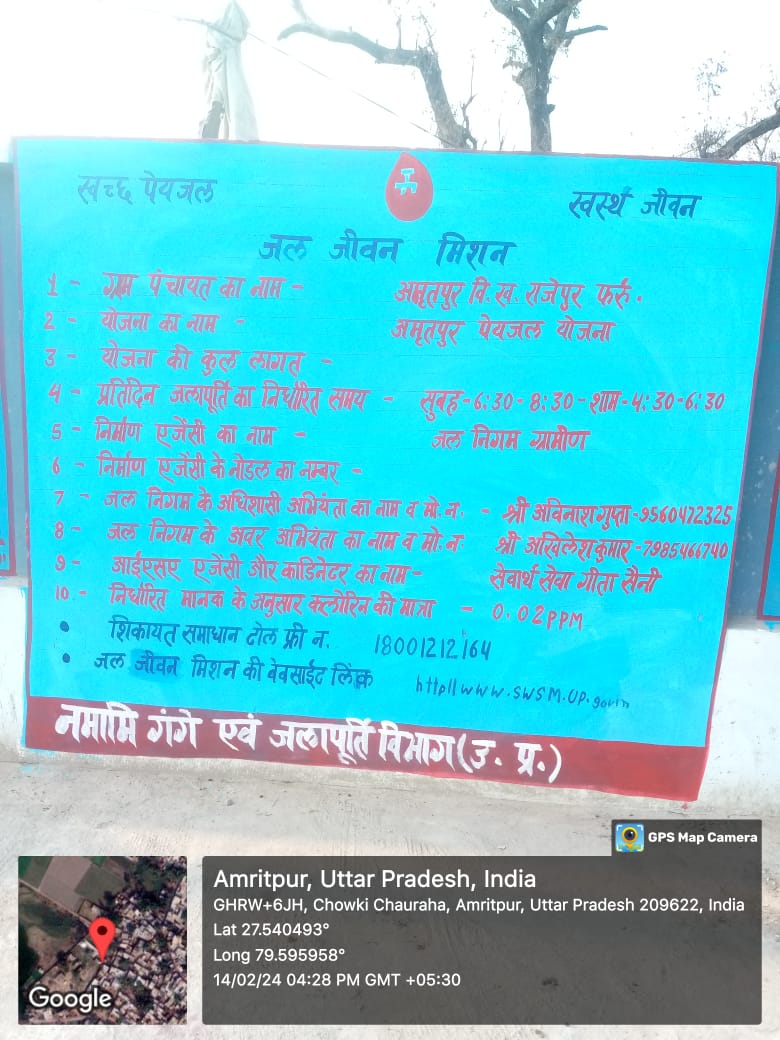 स्वच्छ पेयजल
स्वस्थ जीवन
जल जीवन मिशन
1 - ग्राम पंचायत का नाम - अमृतपुर वि.ख. राजेपुर फर्रु.
2 - योजना का नाम - अमृतपुर पेयजल योजना
3 - योजना की कुल लागत -
4 - प्रतिदिन जलापूर्ति का निर्धारित समय - सुबह-6:30-8:30-शाम-4:30-6:30
5 - निर्माण एजेंसी का नाम - जल निगम ग्रामीण
6 - निर्माण एजेंसी के नोडल का नम्बर -
7 - जल निगम के अधिशासी अभियंता का नाम व मो.न. - श्री अविनाश गुप्ता-9560472325
8 - जल निगम के अवर अभियंता का नाम व मो.न. श्री अखिलेश कुमार-7985466740
9 - आईएसए एजेंसी और कार्डिनेटर का नाम- सेवार्थ सेवा गीता सैनी
10 - निर्धारित मानक के अनुसार क्लोरिन की मात्रा - 0.02PPM
• शिकायत समाधान टोल फ्री न. 18001212164
• जल जीवन मिशन की वेबसाईट लिंक http||www.swsm.up.govin
नमामि गंगे एवं जलापूर्ति विभाग (उ. प्र.)
GPS Map Camera
Amritpur, Uttar Pradesh, India
GHRW+6JH, Chowki Chauraha, Amritpur, Uttar Pradesh 209622, India
Lat 27.540493°
Long 79.595958°
14/02/24 04:28 PM GMT +05:30
Google